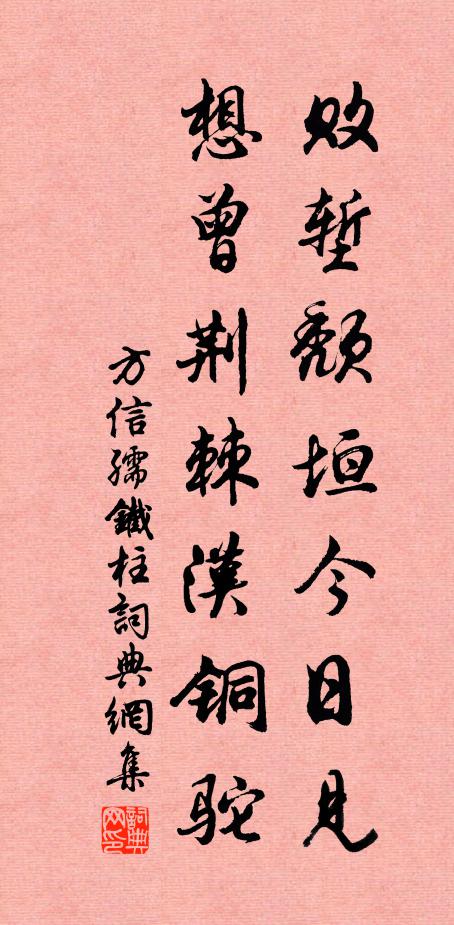 败堑颓垣今日见
想曾荆棘汉铜驼
方信孺鐵柱詞典網集
詞典网印